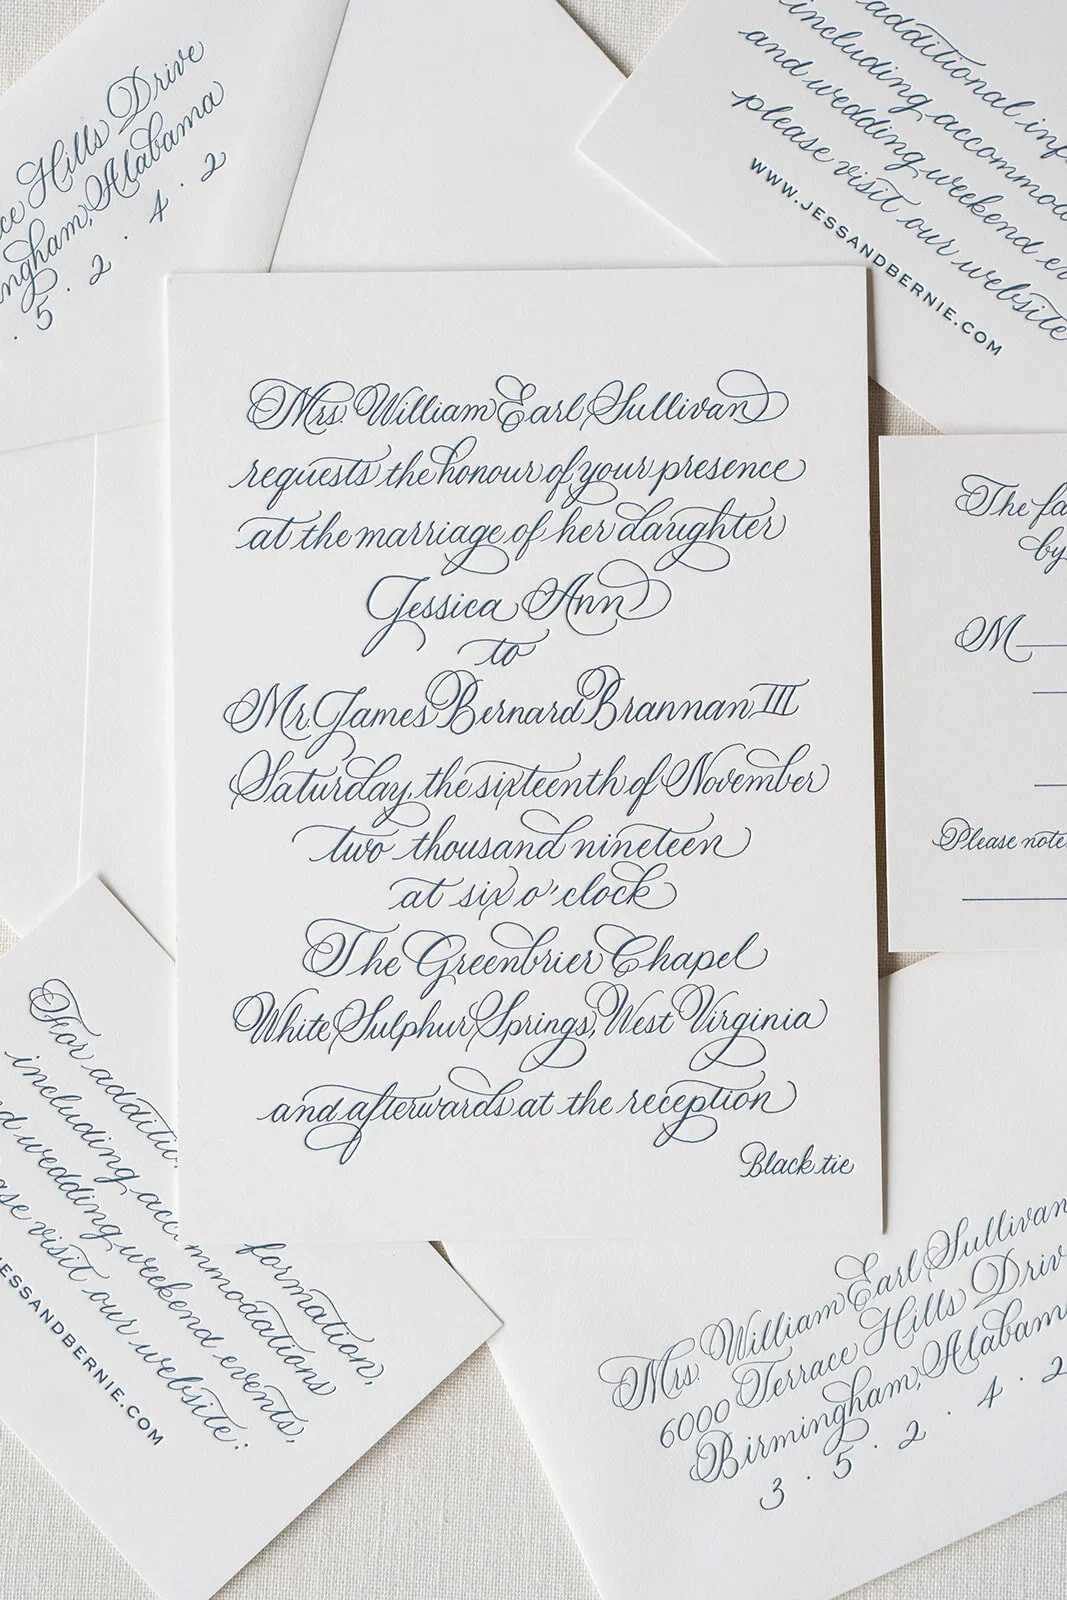 Hills Drive
Alabama
5 . 2 . 4 . 2
additional
including accommo
and wedding weekend
please visit our website
WWW.JESSANDBERNIE.COM
Mrs. William Earl Sullivan
requests the honour of your presence
at the marriage of her daughter
Jessica Ann
to
Mr. James Bernard Brannan III
Saturday, the sixteenth of November
two thousand nineteen
at six o'clock
The Greenbrier Chapel
White Sulphur Springs, West Virginia
and afterwards at the reception
Black tie
The fa
by
M
Please note
For additi
including acc mmodations
wedding weekend events,
visit our website:
ESSANDBERNIE.COM
formation,
Mrs. William Earl Sullivan
6000 Terrace Hills Driv
Birmingham, Alabam
3 . 5 . 2 . 4 . 2